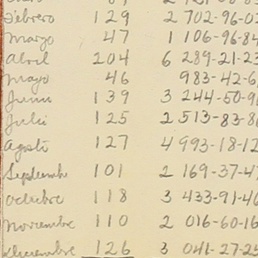 Febrero 129 2 702-96-0
Marzo 47 1 106-96-84
Abril 204 6 289-21-23
Mayo 46 983-42-6
Junio 139 3 244-50-9
Julio 125 2 513-83-8
Agosto 127 4 993-18-12
Septiembre 101 2 169-37-4
Octubre 118 3 433-91-40
Noviembre 110 2 016-60-16
Diciembre 126 3 041-27-25